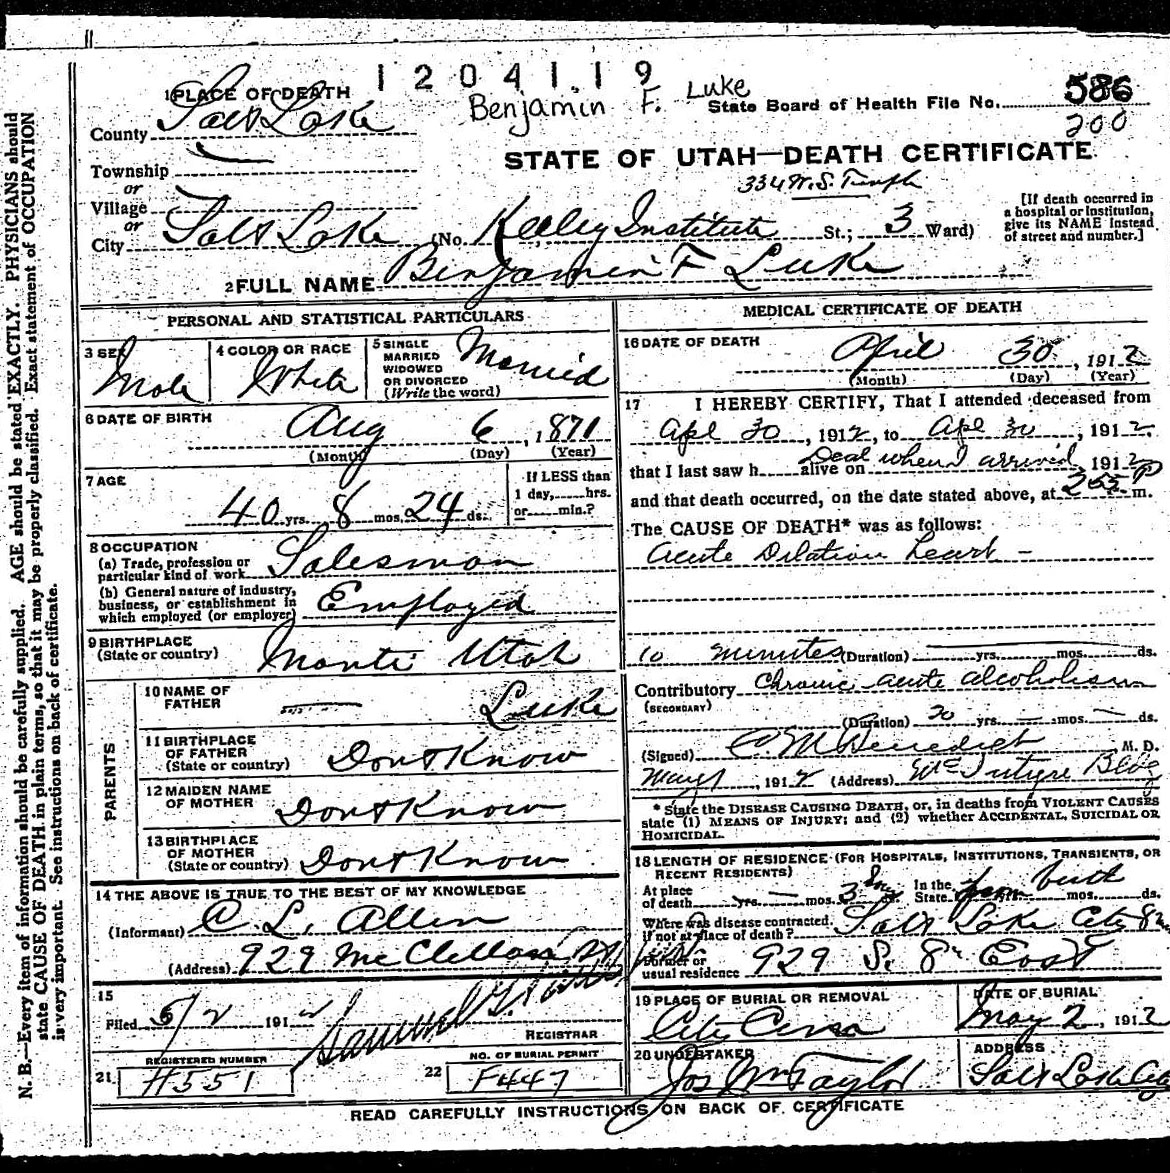 1204119
Benjamin F. Luke
State Board of Health File No. 586
200
1 PLACE OF DEATH
County Salt Lake
STATE OF UTAH—DEATH CERTIFICATE
Township
or
Village
or
334 W. S. Temple
City Salt Lake (No. Keeley Institute St.; 3 Ward)
[If death occurred in
a hospital or institution,
give its NAME instead
of street and number.]
2 FULL NAME Benjamin F Luke
PERSONAL AND STATISTICAL PARTICULARS
3 SEX
Male
4 COLOR OR RACE
White
5 SINGLE
MARRIED
WIDOWED
OR DIVORCED
(Write the word)
Married
6 DATE OF BIRTH
Aug 6, 1871
(Month) (Day) (Year)
7 AGE
40 yrs. 8 mos. 24 ds.
If LESS than
1 day, hrs.
or min.?
8 OCCUPATION
(a) Trade, profession or
particular kind of work Salesman
(b) General nature of industry,
business, or establishment in
which employed (or employer) Employed
9 BIRTHPLACE
(State or country) Manti Utah
PARENTS
10 NAME OF
FATHER Luke
11 BIRTHPLACE
OF FATHER
(State or country) Dont Know
12 MAIDEN NAME
OF MOTHER Dont Know
13 BIRTHPLACE
OF MOTHER
(State or country) Dont Know
14 THE ABOVE IS TRUE TO THE BEST OF MY KNOWLEDGE
(Informant) C. L. Allen
(Address) 929 McClellan
15
Filed 5/2 1912 Samuel G.
REGISTRAR
REGISTERED NUMBER
21 H551
NO. OF BURIAL PERMIT
22 F447
MEDICAL CERTIFICATE OF DEATH
16 DATE OF DEATH
April 30, 1912
(Month) (Day) (Year)
17 I HEREBY CERTIFY, That I attended deceased from
Apl 30, 1912, to Apl 30, 1912,
that I last saw h alive on Dead when I arrived, 1912
and that death occurred, on the date stated above, at 255 P m.
The CAUSE OF DEATH* was as follows:
Acute Dilation heart —
10 minutes (Duration) yrs. mos. ds.
Contributory Chronic acute alcoholism
(SECONDARY)
(Duration) 20 yrs. mos. ds.
(Signed) C M Benedict M. D.
May 1, 1912 (Address) McIntyre Bldg
* State the DISEASE CAUSING DEATH, or, in deaths from VIOLENT CAUSES
state (1) MEANS OF INJURY; and (2) whether ACCIDENTAL, SUICIDAL OR
HOMICIDAL.
18 LENGTH OF RESIDENCE (FOR HOSPITALS, INSTITUTIONS, TRANSIENTS, OR
RECENT RESIDENTS)
At place
of death yrs. mos. 3 days ds. In the
State from birth mos. ds.
Where was disease contracted,
if not at place of death? Salt Lake City
Former or
usual residence 929 S. 8th East
19 PLACE OF BURIAL OR REMOVAL
City Cem
DATE OF BURIAL
May 2, 1912
20 UNDERTAKER
Jos Wm Taylor
ADDRESS
Salt Lake City
READ CAREFULLY INSTRUCTIONS ON BACK OF CERTIFICATE
N. B.—Every item of information should be carefully supplied. AGE should be stated EXACTLY. PHYSICIANS should
state CAUSE OF DEATH in plain terms, so that it may be properly classified. Exact statement of OCCUPATION
is very important. See instructions on back of certificate.